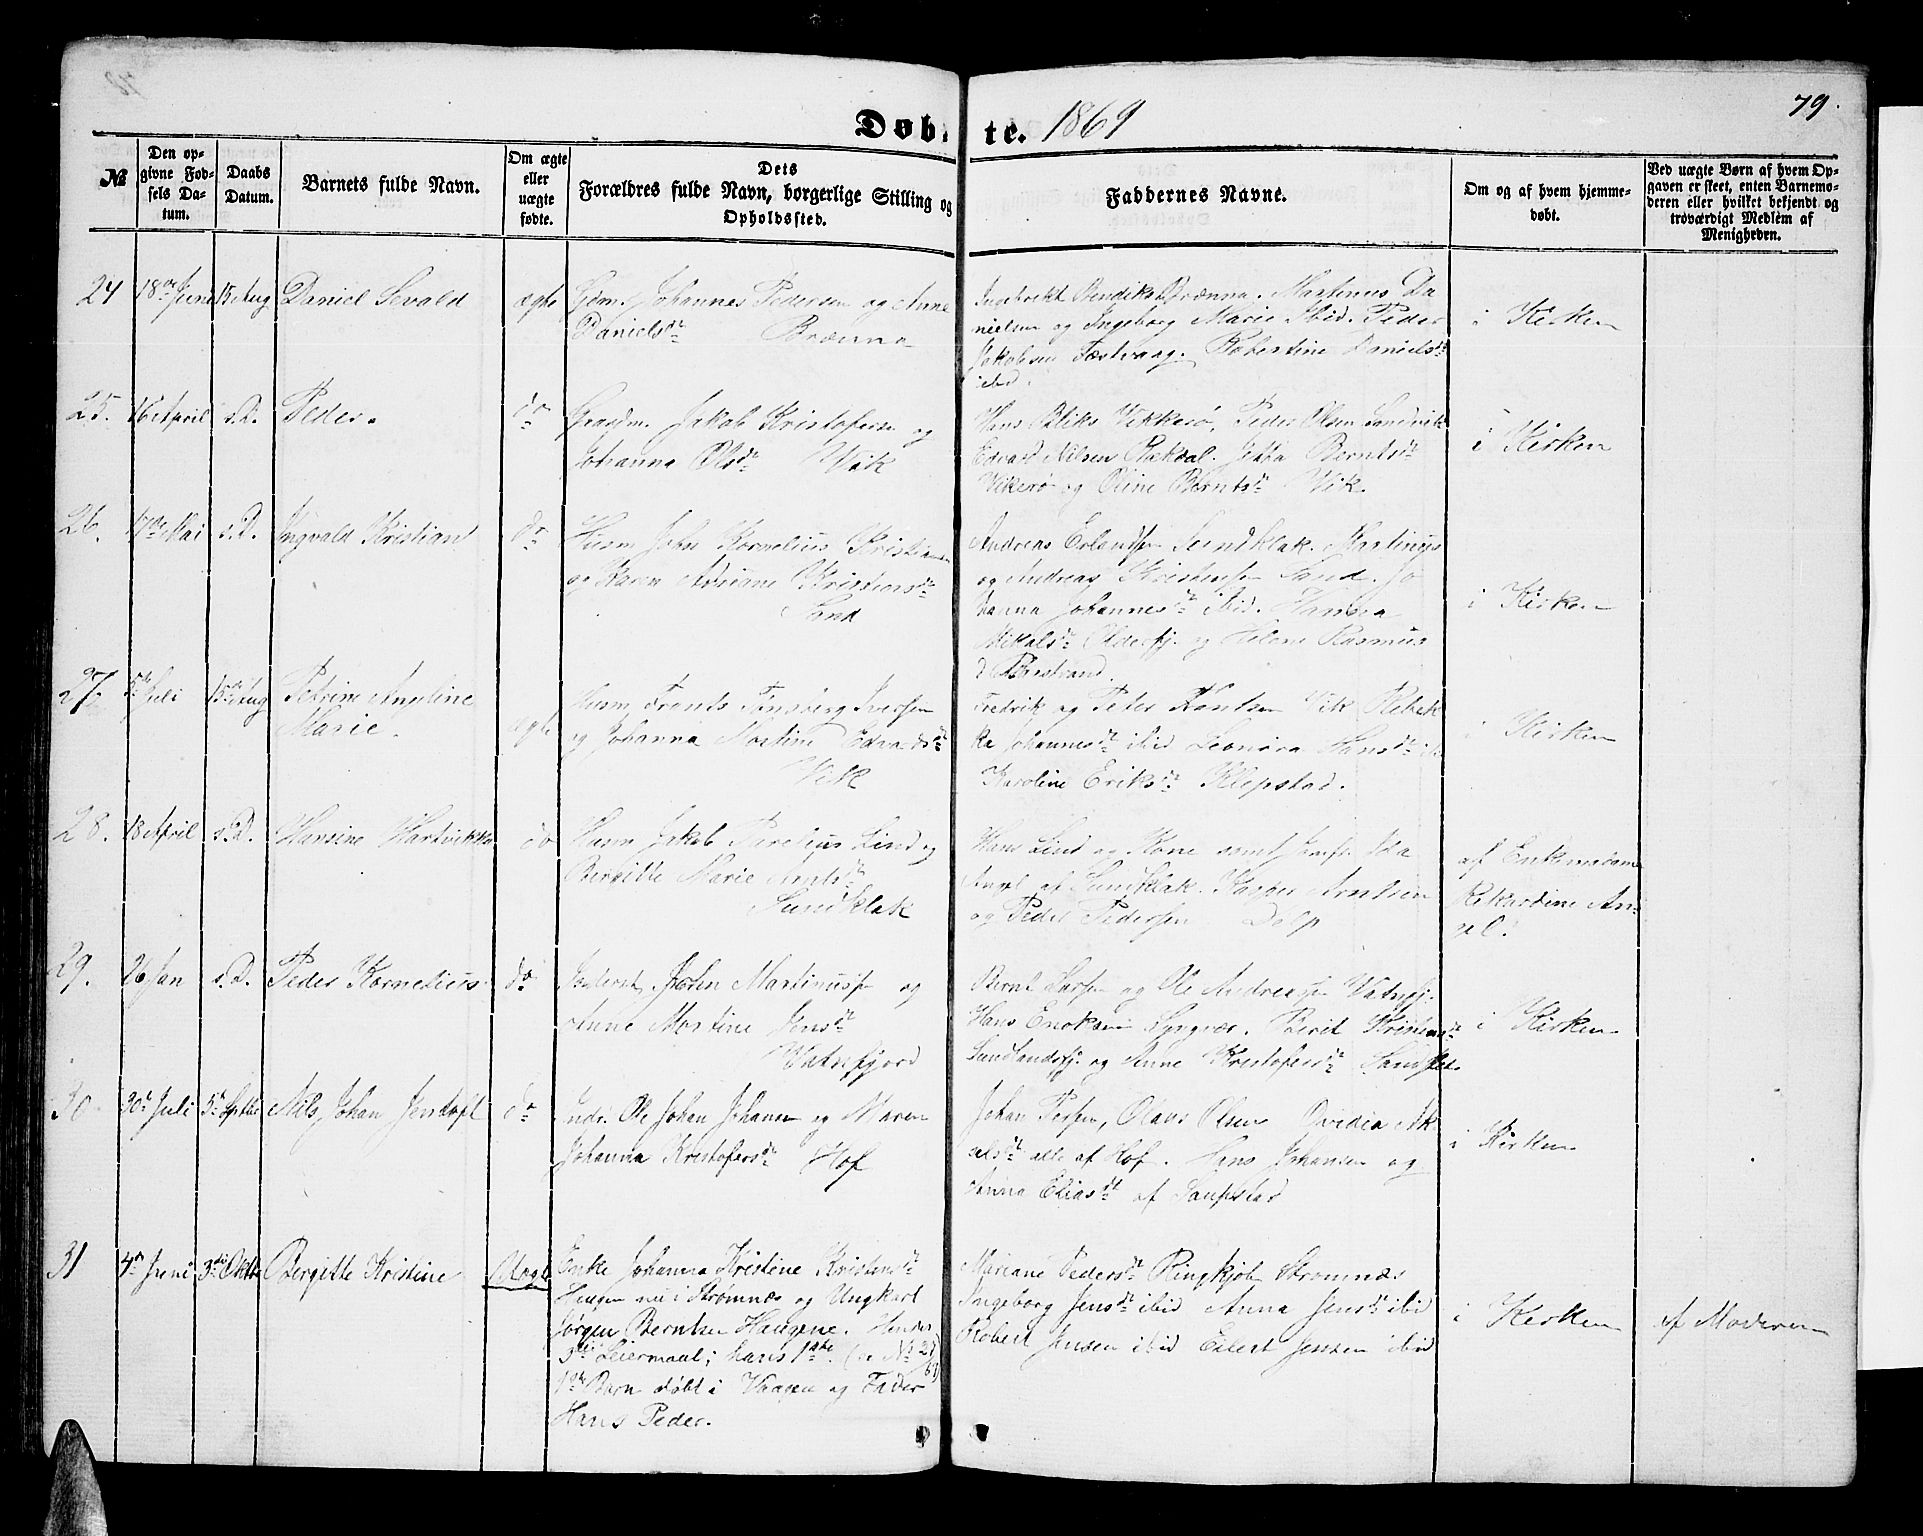 79.
Døbte. 1869
№
Den opgivne Fødsels Datum.
Daabs Datum.
Barnets fulde Navn.
Om ægte eller uægte fødte.
Dets Forældres fulde Navn, borgerlige Stilling og Opholdssted.
Faddernes Navne.
Om og af hvem hjemmedøbt.
Ved uægte Børn af hvem Opgaven er skeet, enten Barnemoderen eller hvilket bekjendt og troværdigt Medlem af Menigheden.
24 18de Juni 15 Aug Daniel Sevald ægte
Gdm. Johannes Pedersen og Anne
Daniels dt Brænna
Brænna. Martinus Da
nielsen og Ingeborg Marie ibid. Peder
Jakobsen Festvaag. Robertine Daniels dt
ibid.
i Kirken
25. 16 April s.D. Peder. do
Jakob Kristofersen og
Johanna Ols dt Vik
Hans Vikkerø, Peder Olsen Sandvik
Edvard Nilsen Rækdal. Bernts dt
Vikerø og Oline Bernts dt Vik.
i Kirken
26. 17de Mai s.D. Ingvald Kristian do
Husm John Kornelius Kristiansen
og Karen Adriane Kristians dt
Sand
Andreas Erlandsen Sundklak. Martinus
og Andreas Kristensen Sand. Jo
hanna Johannes dt ibid. Hanna
Mikals dt Olderfj. og Helene Rasmus
d
i Kirken
27. 5te Juli 15de Aug Petrine Angeline
Marie. ægte
Husm Frants Tønsberg Iversen
og Johanna Martine Edvards dt
Vik
Fredrik og Peter Vik Rebek
ka Johannes dt ibid Leonora Hans dt
Karoline Eriks dt Klepstad.
i Kirken
28. 18 April s.D. Hansine Hartvikka do
Husm Jakob Lind og
Bergitte Marie dt
Sundklak
Hans Lind og Kone samt Jomfr. Ida
Angel af Sundklak. Kasper Arntsen
og Peder Pedersen Dolp
af Enkemadam
Rikardine An
gel.
29. 26 Jan s.D. Peder Kornelius do
Inderst Martinussen og
Anne Martine Jens dt
Vatnfjord
Bernt Larsen og Ole Andreassen Vatnfj.
Hans Enoksen Lyngvær. Berit
Sundlandsfj. og Anne Kristofers dt
i Kirken
30. 30te Juli 5te Septbr Nils Johan Jentoft do
Indr. Ole Johan Johansen og Maren
Johanna Kristofers dt Hof
Johan Olaus Olsen Ovidia Ak
sels dt alle af Hof. Hans Johansen og
Anna Elias dt af Saupstad
i Kirken
31 4de Juni 3die Oktbr Bergitte Kristine Uægte
Enke Johanna Kristine Kristens dt
Haugen nu i Strømnæs og Ungkarl
Jørgen Berntsen Haugene. Hendes
3die Leiermaal; hans 1ste.
1ste Barn døbt i Vaagen og Fader
Hans Peder.
Mariane Peders dt Ringkjøb Strømnæs
Ingeborg Jens dt ibid Anna Jens dt ibid
Robert Jensen ibid Eilert Jensen ibid
i Kirken
af Moderen